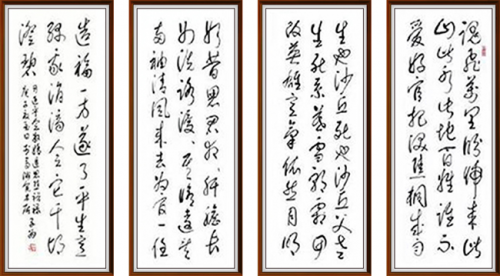 魂飞万里盼归来此
山此水此地百姓谁不
爱好官把泪焦桐成雨
生也沙丘死也沙丘父老
生死系暮雪朝霜毋
改英雄意气依然月明
如昔思君夜夜肝胆长
如洗路漫漫其修远矣
两袖清风来去为官一任
造福一方遂了平生意
绿我涓滴会它千顷
澄碧